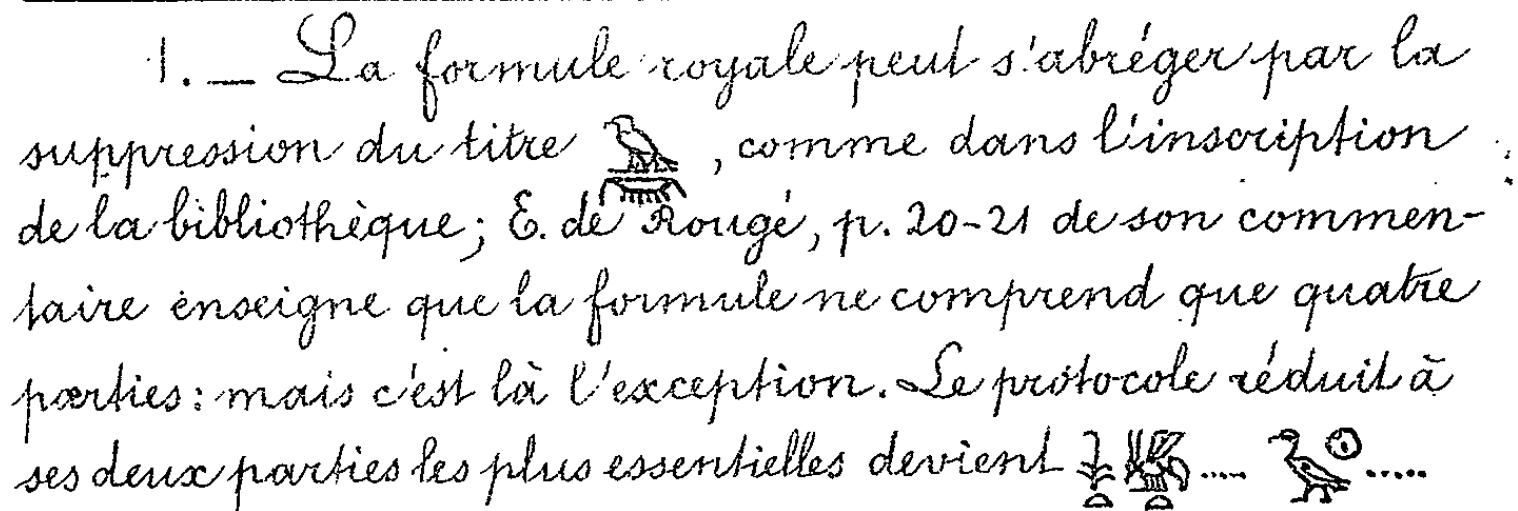 1. — La formule royale peut s'abréger par la
suppression du titre 𓅉, comme dans l'inscription
de la bibliothèque; E. de Rougé, p. 20-21 de son commen-
taire enseigne que la formule ne comprend que quatre
parties: mais c'est là l'exception. Le protocole réduit à
ses deux parties les plus essentielles devient 𓇓𓏏𓆤𓏏.... 𓅭𓇳.....